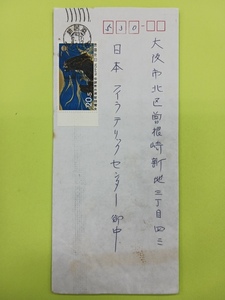 530-
大阪市北区曽根崎新地三丁目四三
日本フィラテリックセンター御中
20